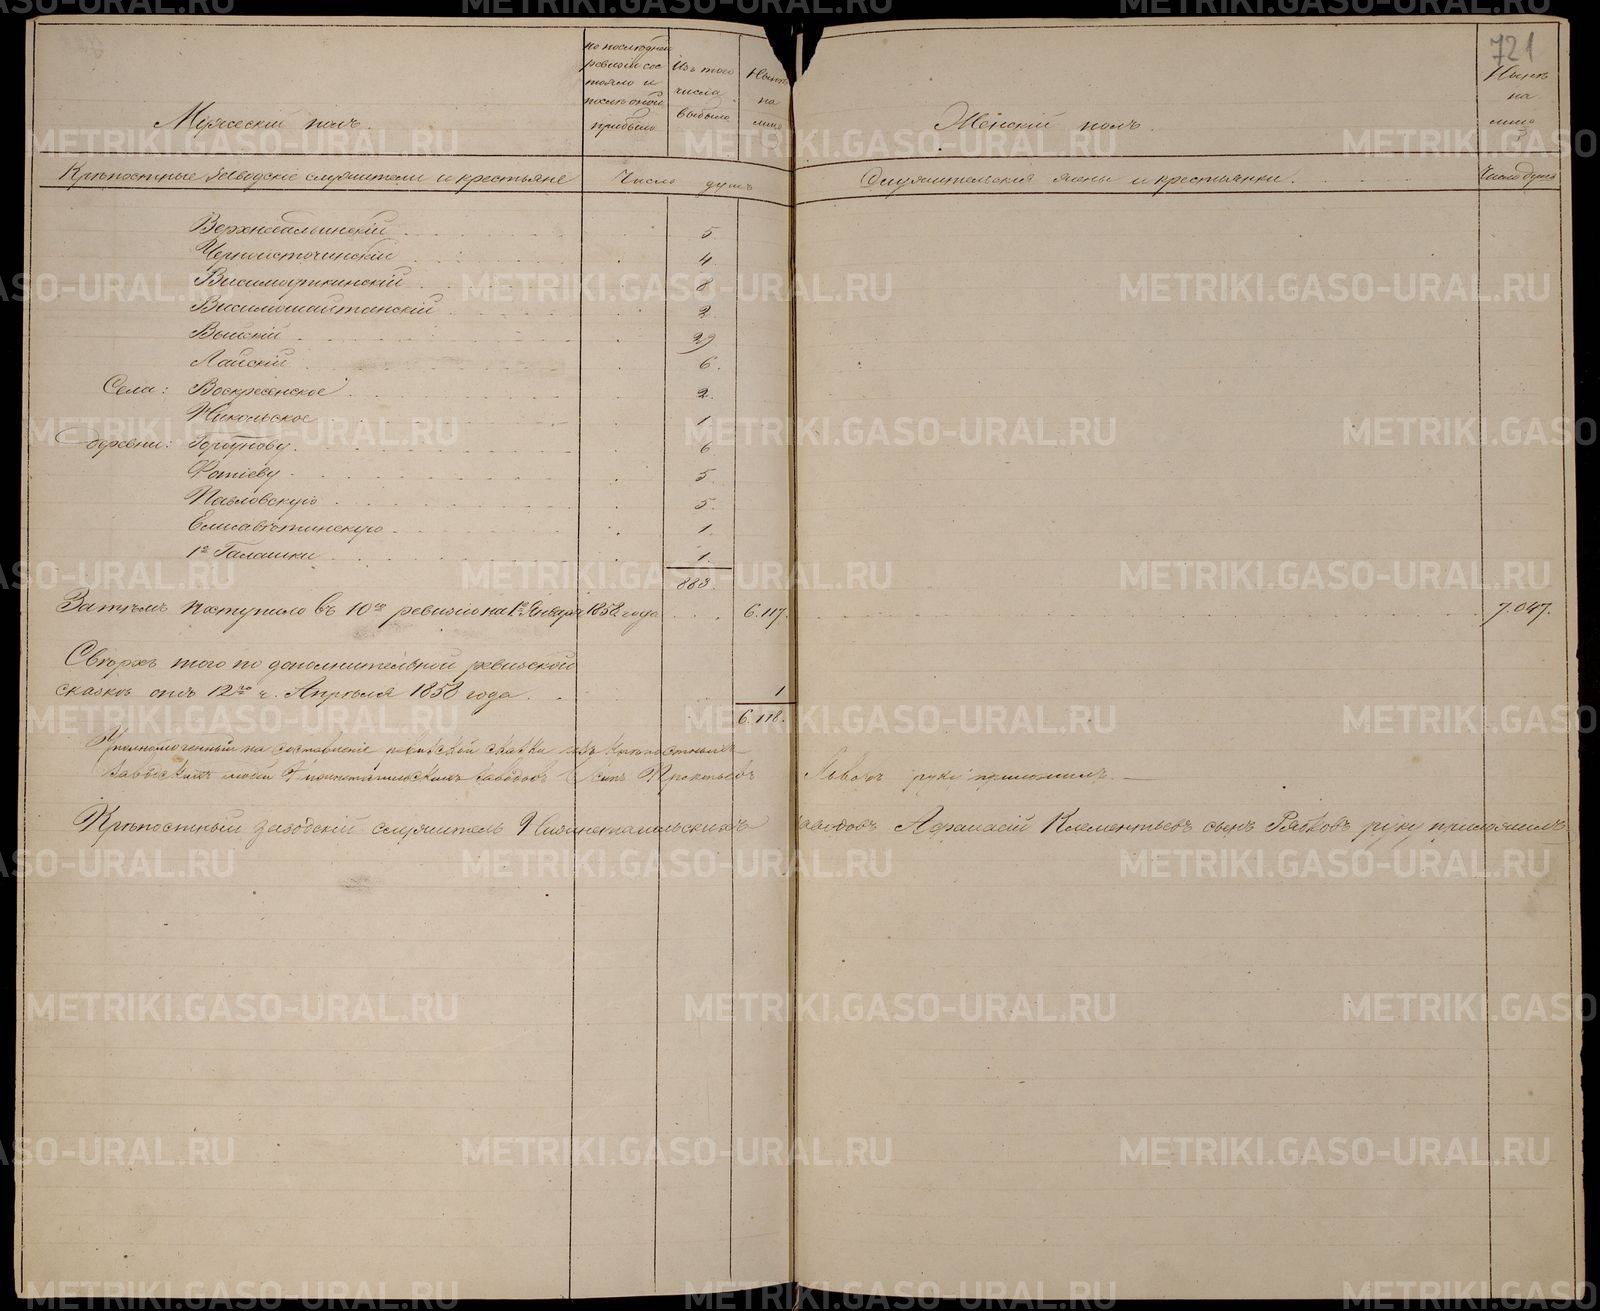 721
Мужескій полъ.
по послѣдней ревизіи состояло и послѣ оной прибыло
Изъ того числа выбыло
Нынѣ на лицо
Женскій полъ.
Нынѣ на лицо
Крѣпостные заводскіе служители и крестьяне
Число душъ
Служительскія жены и крестьянки.
Число душъ
Верхнесалдинскій 5.
Черноисточинскій 4.
Висимоуткинскій 8
Висимошайтанскій 2.
Выйскій 29
Лайскій 6.
Села: Воскресенское 2.
Никольское 1
деревни: Горбунову 6
Фотіеву 5.
Павловскую 5.
Елисаветинскую 1
1е Галашки 1.
883.
Затѣмъ поступило въ 10ю ревизію на 1е Января 1858 года 6.117. 7.047.
Сверхъ того по дополнительной ревизской
сказкѣ отъ 12го ч. Апрѣля 1858 года. 1
6.118.
Уполномоченный на составленіе ревизской сказки изъ крѣпостныхъ
заводскихъ людей Нижнетагильскихъ заводовъ Осипъ Прокопьевъ руку приложилъ.
Крѣпостный заводскій служитель Нижнетагильскихъ заводовъ Афанасій Клементьевъ сынъ Рябковъ руку приложилъ
METRIKI.GASO-URAL.RU